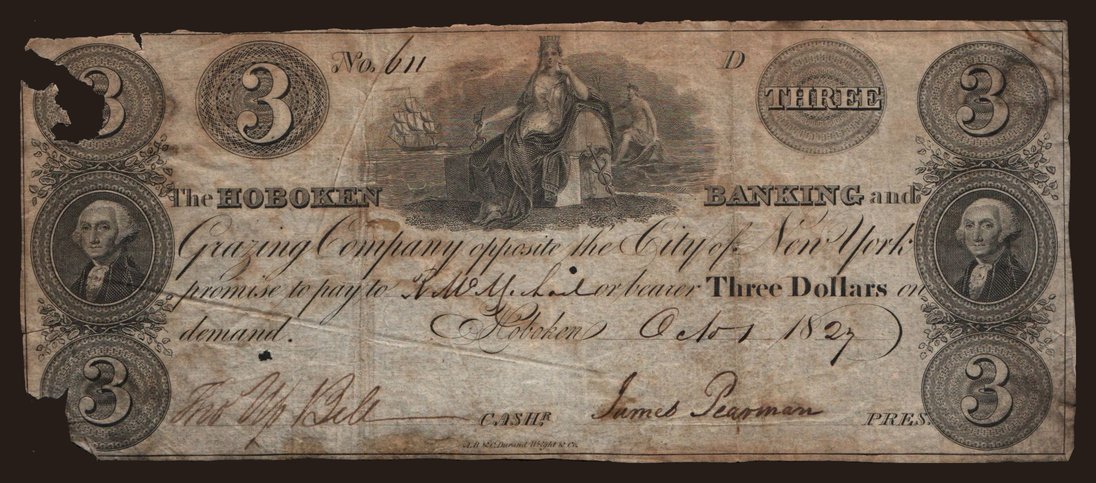 3 3 No. 611 D THREE 3
The HOBOKEN BANKING and
Grazing Company opposite the City of New York
promise to pay to or bearer Three Dollars on
demand. Hoboken Oct 1 1827
3 Bell CASHR. James Pearman PRES. 3
A.B. & C. Durand Wright & Co.